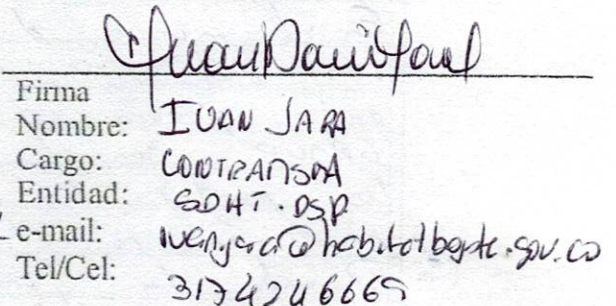 Firma
Nombre: IVAN JARA
Cargo: CONTRATISTA
Entidad: SDHT. DSP
e-mail: ivan.jara@habitatbogota.gov.co
Tel/Cel: 3174246669